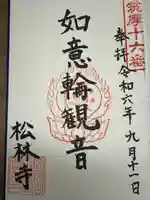 筑摩十六番
奉拝 令和六年九月十一日
如意輪観音
松林寺